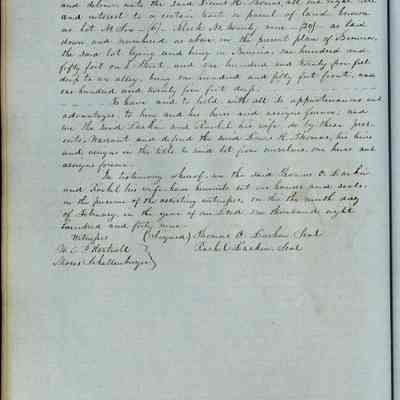 and delivers unto the said Lewis R. Thomas, all our right title
and interest to a certain tract or parcel of land known
as lot No Six (6) Block No twenty nine (29) as laid
down and numbered as above on the present plan of Benicia,
the said lot lying and being in Benicia, one hundred and
fifty foot on Street, and one hundred and twenty five feet
deep to an alley, being one hundred and fifty feet front, and
one hundred and twenty five feet deep.
To have and to hold with all its appurtenances and
advantages to him and his heirs and assigns forever, and
we the said Larkin and Rachel his wife, do by these pres-
ents, Warrant and defend the said Lewis R. Thomas, his heirs
and assigns in the title to said lot from ourselves, our heirs and
assigns forever.
In testimony whereof, we the said Thomas O. Larkin
and Rachel his wife have hereunto set our hands and seals,
in the presence of the assisting witnesses on this the ninth day
of February, in the year of our Lord one thousand eight
hundred and forty nine.
Witnesses (Signed) Thomas O. Larkin Seal
W. E. P. Hartnell Rachel Larkin Seal
Moses Schallenberger